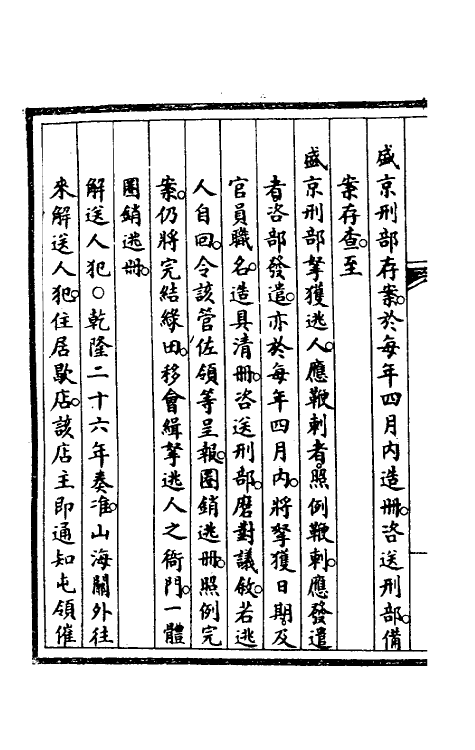 盛京刑部存案。於每年四月內造冊。咨送刑部。備
案存查。至
盛京刑部拏獲逃人。應鞭刺者。照例鞭刺。應發遣
者咨部發遣。亦於每年四月內。將拏獲日期及
官員職名。造具清冊。咨送刑部。磨對議敘。若逃
人自回。令該管佐領等呈報。圈銷逃冊。照例完
案。仍將完結緣由。移會緝拏逃人之衙門。一體
圈銷逃冊。
解送人犯○乾隆二十六年奏准。山海關外往
來解送人犯。住居歇店。該店主即通知屯領催